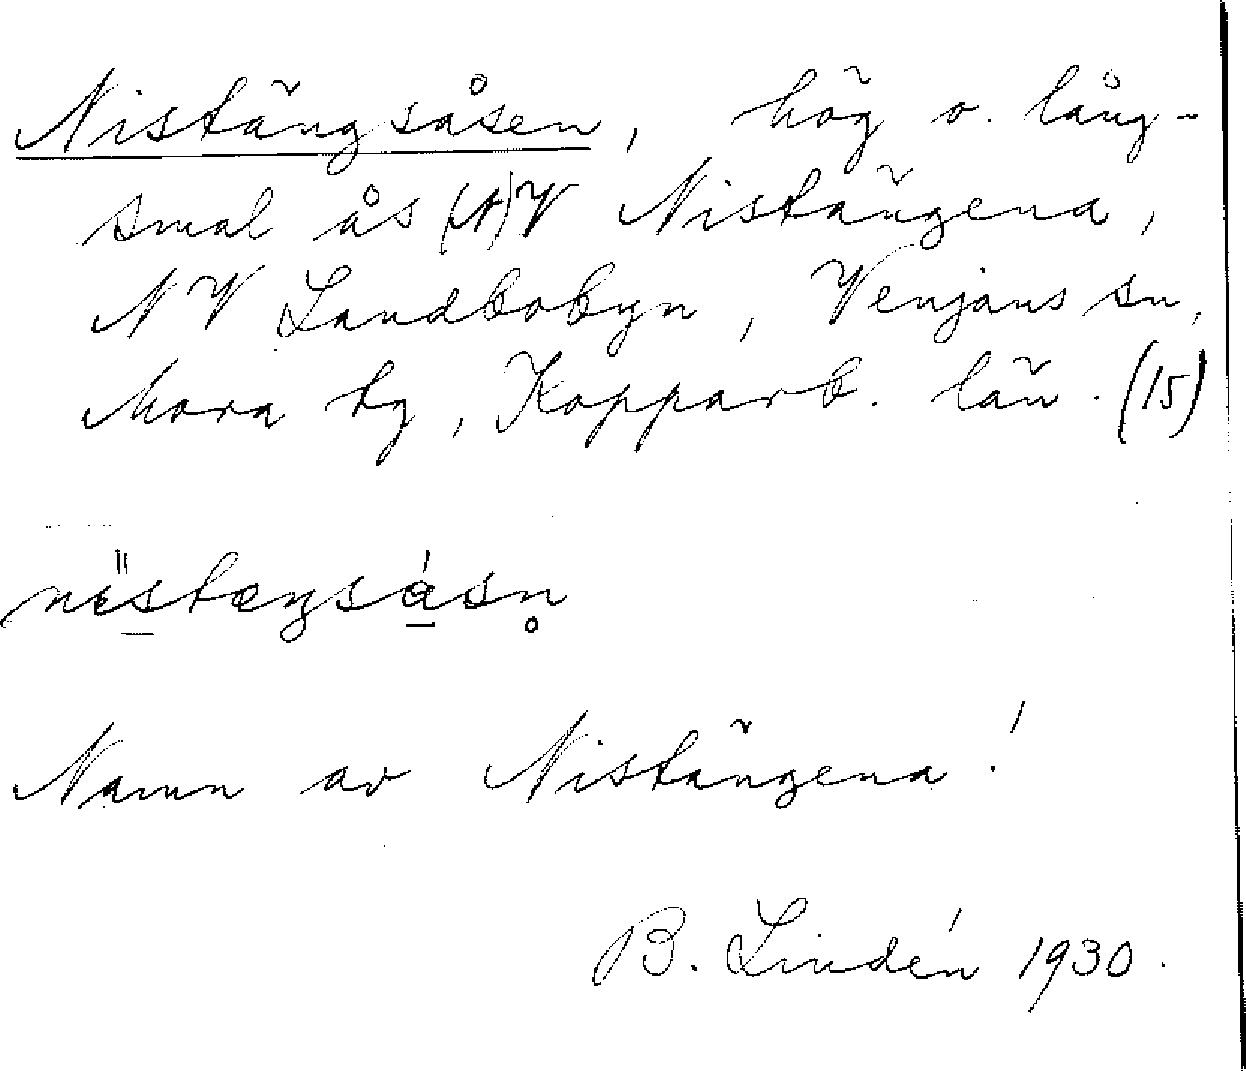 Nistängsåsen, hög o. lång-
smal ås (N)V Nistängena,
NV Landbobyn, Venjans sn,
Mora tg, Kopparb. län. (15)
nistæŋsåsn̥
Namn av Nistängena!
B. Lindén 1930.